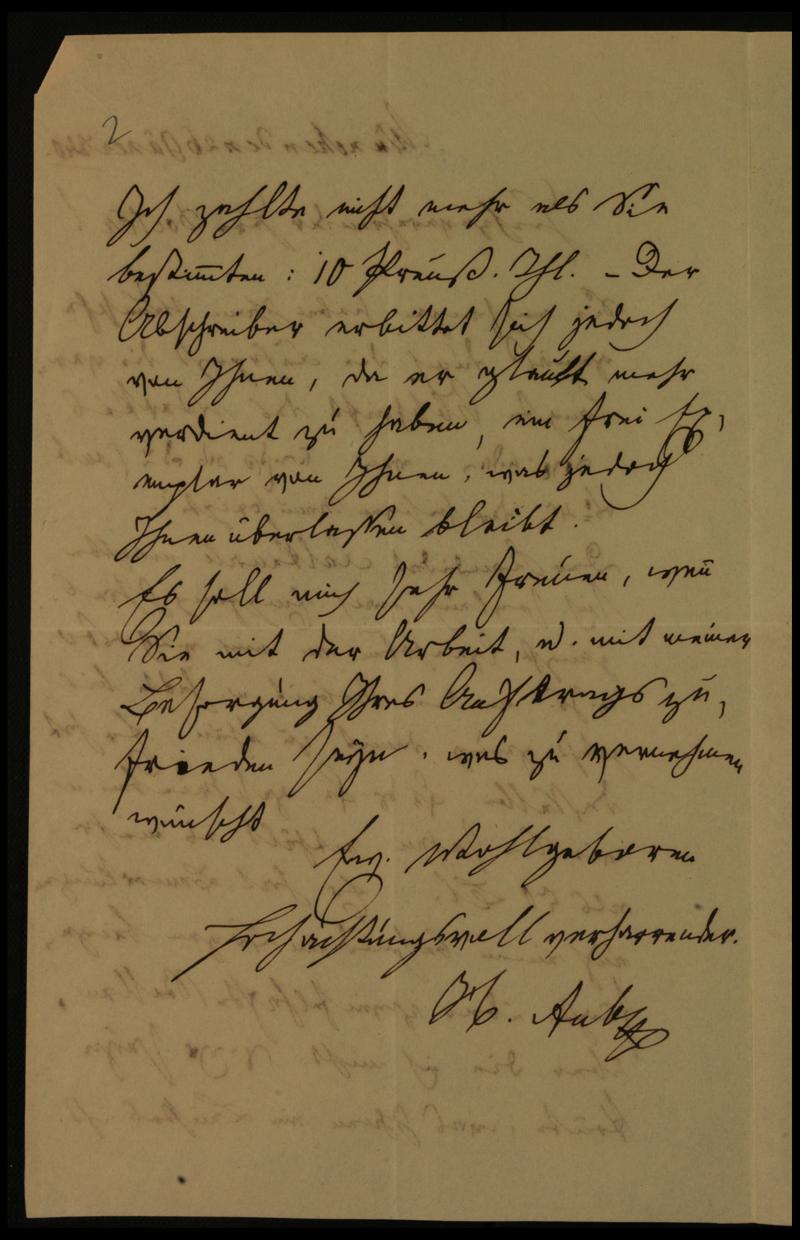 2
Ich zahlte nicht mehr als Sie
bestim̅ten : 10 Preuß. Thl. – Der
Abschreiber erbittet sich jedoch
von Ihnen, da er glaubt mehr
verdient zu haben, ein frei Ex,
emplar von Ihnen, was jedoch
Ihnen überlassen bleibt.
Es soll mich sehr freuen, wen̅
Sie mit der Arbeit, u. mit meiner
Besorgung Ihres Auftrags zu,
frieden seyn, was zu vernehmen
wünscht
Ew. Wohlgeboren
Hochachtungsvoll verharrender.
H. Aub